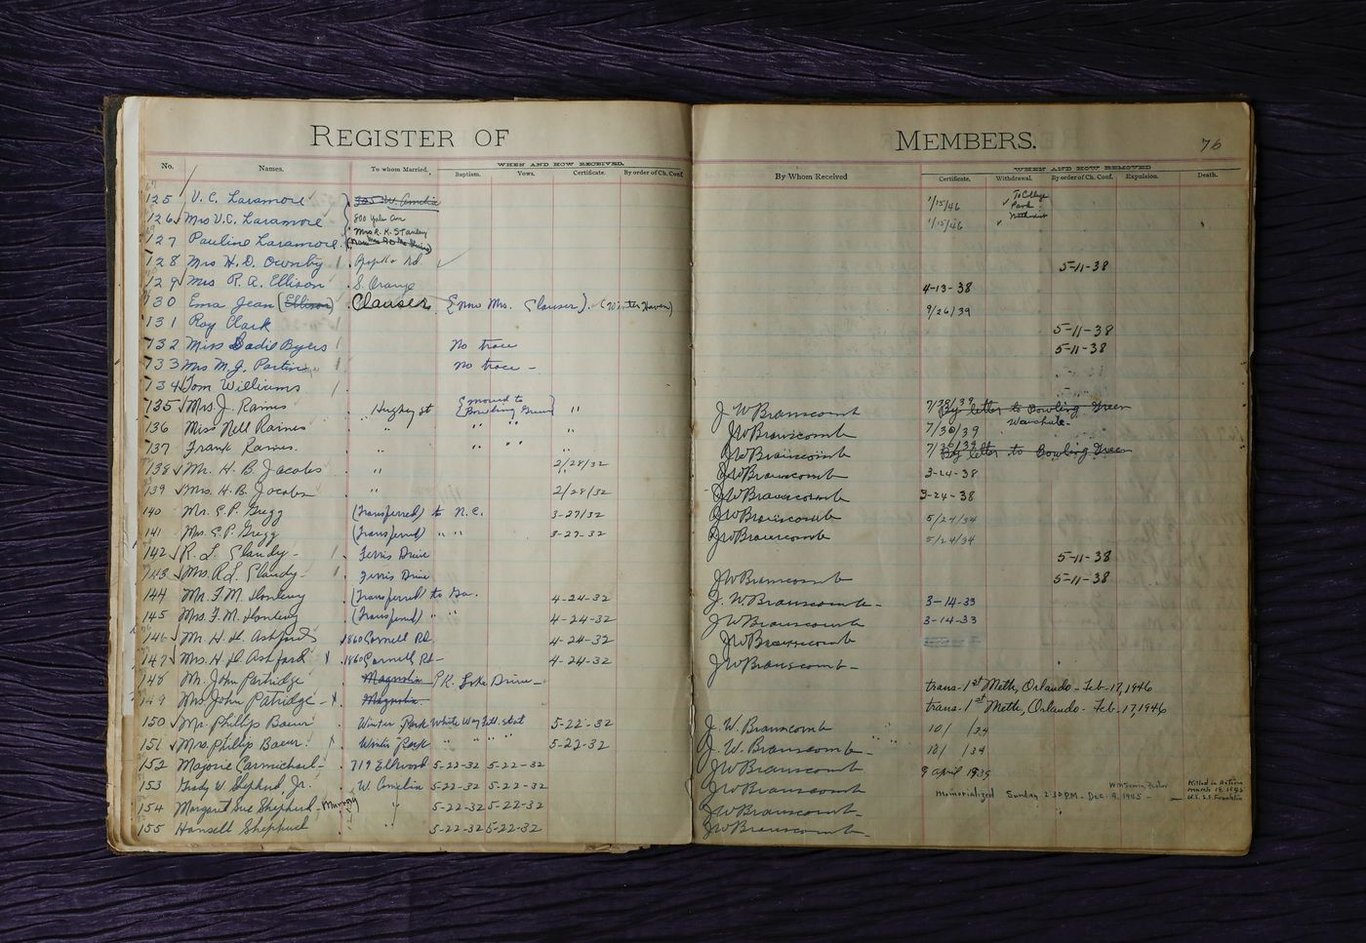 REGISTER OF MEMBERS. 76
No. Names. To whom Married. WHEN AND HOW RECEIVED. By Whom Received WHEN AND HOW REMOVED
Baptism. Vows. Certificate. By order of Ch. Conf. Certificate. Withdrawal. By order of Ch. Conf. Expulsion. Death.
125 V. C. Laramore 305 W. Amelia 1/15/46 To College Park
126 Mrs V.C. Laramore 800 Yale 1/15/46
127 Pauline Laramore Mrs R. K. Stanley
128 Mrs H. D. Ownby Rd 5-11-38
129 Mrs R. A. Ellison S. Orange 4-13-38
130 Ema Jean (Ellison) Clauser (now Mrs. Clauser). (Winter Haven) 9/26/39
131 Roy Clark 5-11-38
132 Miss Sadie Byers No trace 5-11-38
133 Mrs M. J. No trace -
134 Tom Williams
135 Mrs. J. Raines Hughey st moved to Bowling Green " J W Branscomb 7/30/39 By letter to Bowling Green
136 Miss Nell Raines " " " " JW Branscomb 7/30/39 Wauchula-
137 Frank Raines " " " " JW Branscomb 7/30/39 By letter to Bowling Green
138 Mr. H. B. Jacobs " 2/28/32 JW Branscomb 3-24-38
139 Mrs. H. B. Jacobs " 2/28/32 JW Branscomb 3-24-38
140 Mr. E. P. Gregg (Transferred) to N.C. 3-27/32 JW Branscomb 5/24/34
141 Mrs. E. P. Gregg (Transferred) " " 3-27-32 JW Branscomb 5/24/34
142 R. L. Ferris Drive 5-11-38
143 Mrs. R. L. Ferris Drive JW Branscomb 5-11-38
144 Mr. F. M. (Transferred) to Ga. 4-24-32 J. W. Branscomb- 3-14-33
145 Mrs. F. M. (Transferred) " " 4-24-32 JW Branscomb 3-14-33
146 Mr. H. H. Ashford 1860 Cornell Rd. 4-24-32 JW Branscomb
147 Mrs. H H Ashford 1860 Cornell Rd- 4-24-32 JW Branscomb-
148 Mr. John Partridge Magnolia Lake Drive- trans- 1st Meth, Orlando- Feb. 17, 1946
149 Mrs John Patridge- Magnolia trans- 1st Meth, Orlando- Feb. 17, 1946
150 Mr. Phillip Baeur Winter Park 5-22-32 J. W. Branscomb 10/ /34
151 Mrs. Phillip Baeur. Winter Park " " " 5-22-32 J. W. Branscomb- 10/ /34
152 Marjorie Carmichael- 719 Ellwood 5-22-32 5-22-32 JW Branscomb 9 April 1935
153 Grady W. Shepherd, Jr. W. Amelia 5-22-32 5-22-32 JW Branscomb- Memorialized Sunday 2:30 P.M. - Dec. 9, 1945 - Killed in Action March 19, 1945 U.S.S. Franklin
154 Margaret Sue Shepherd- " 5-22-32 5-22-32 JW Branscomb-
155 Hansell Shepherd " 5-22-32 5-22-32 JW Branscomb-